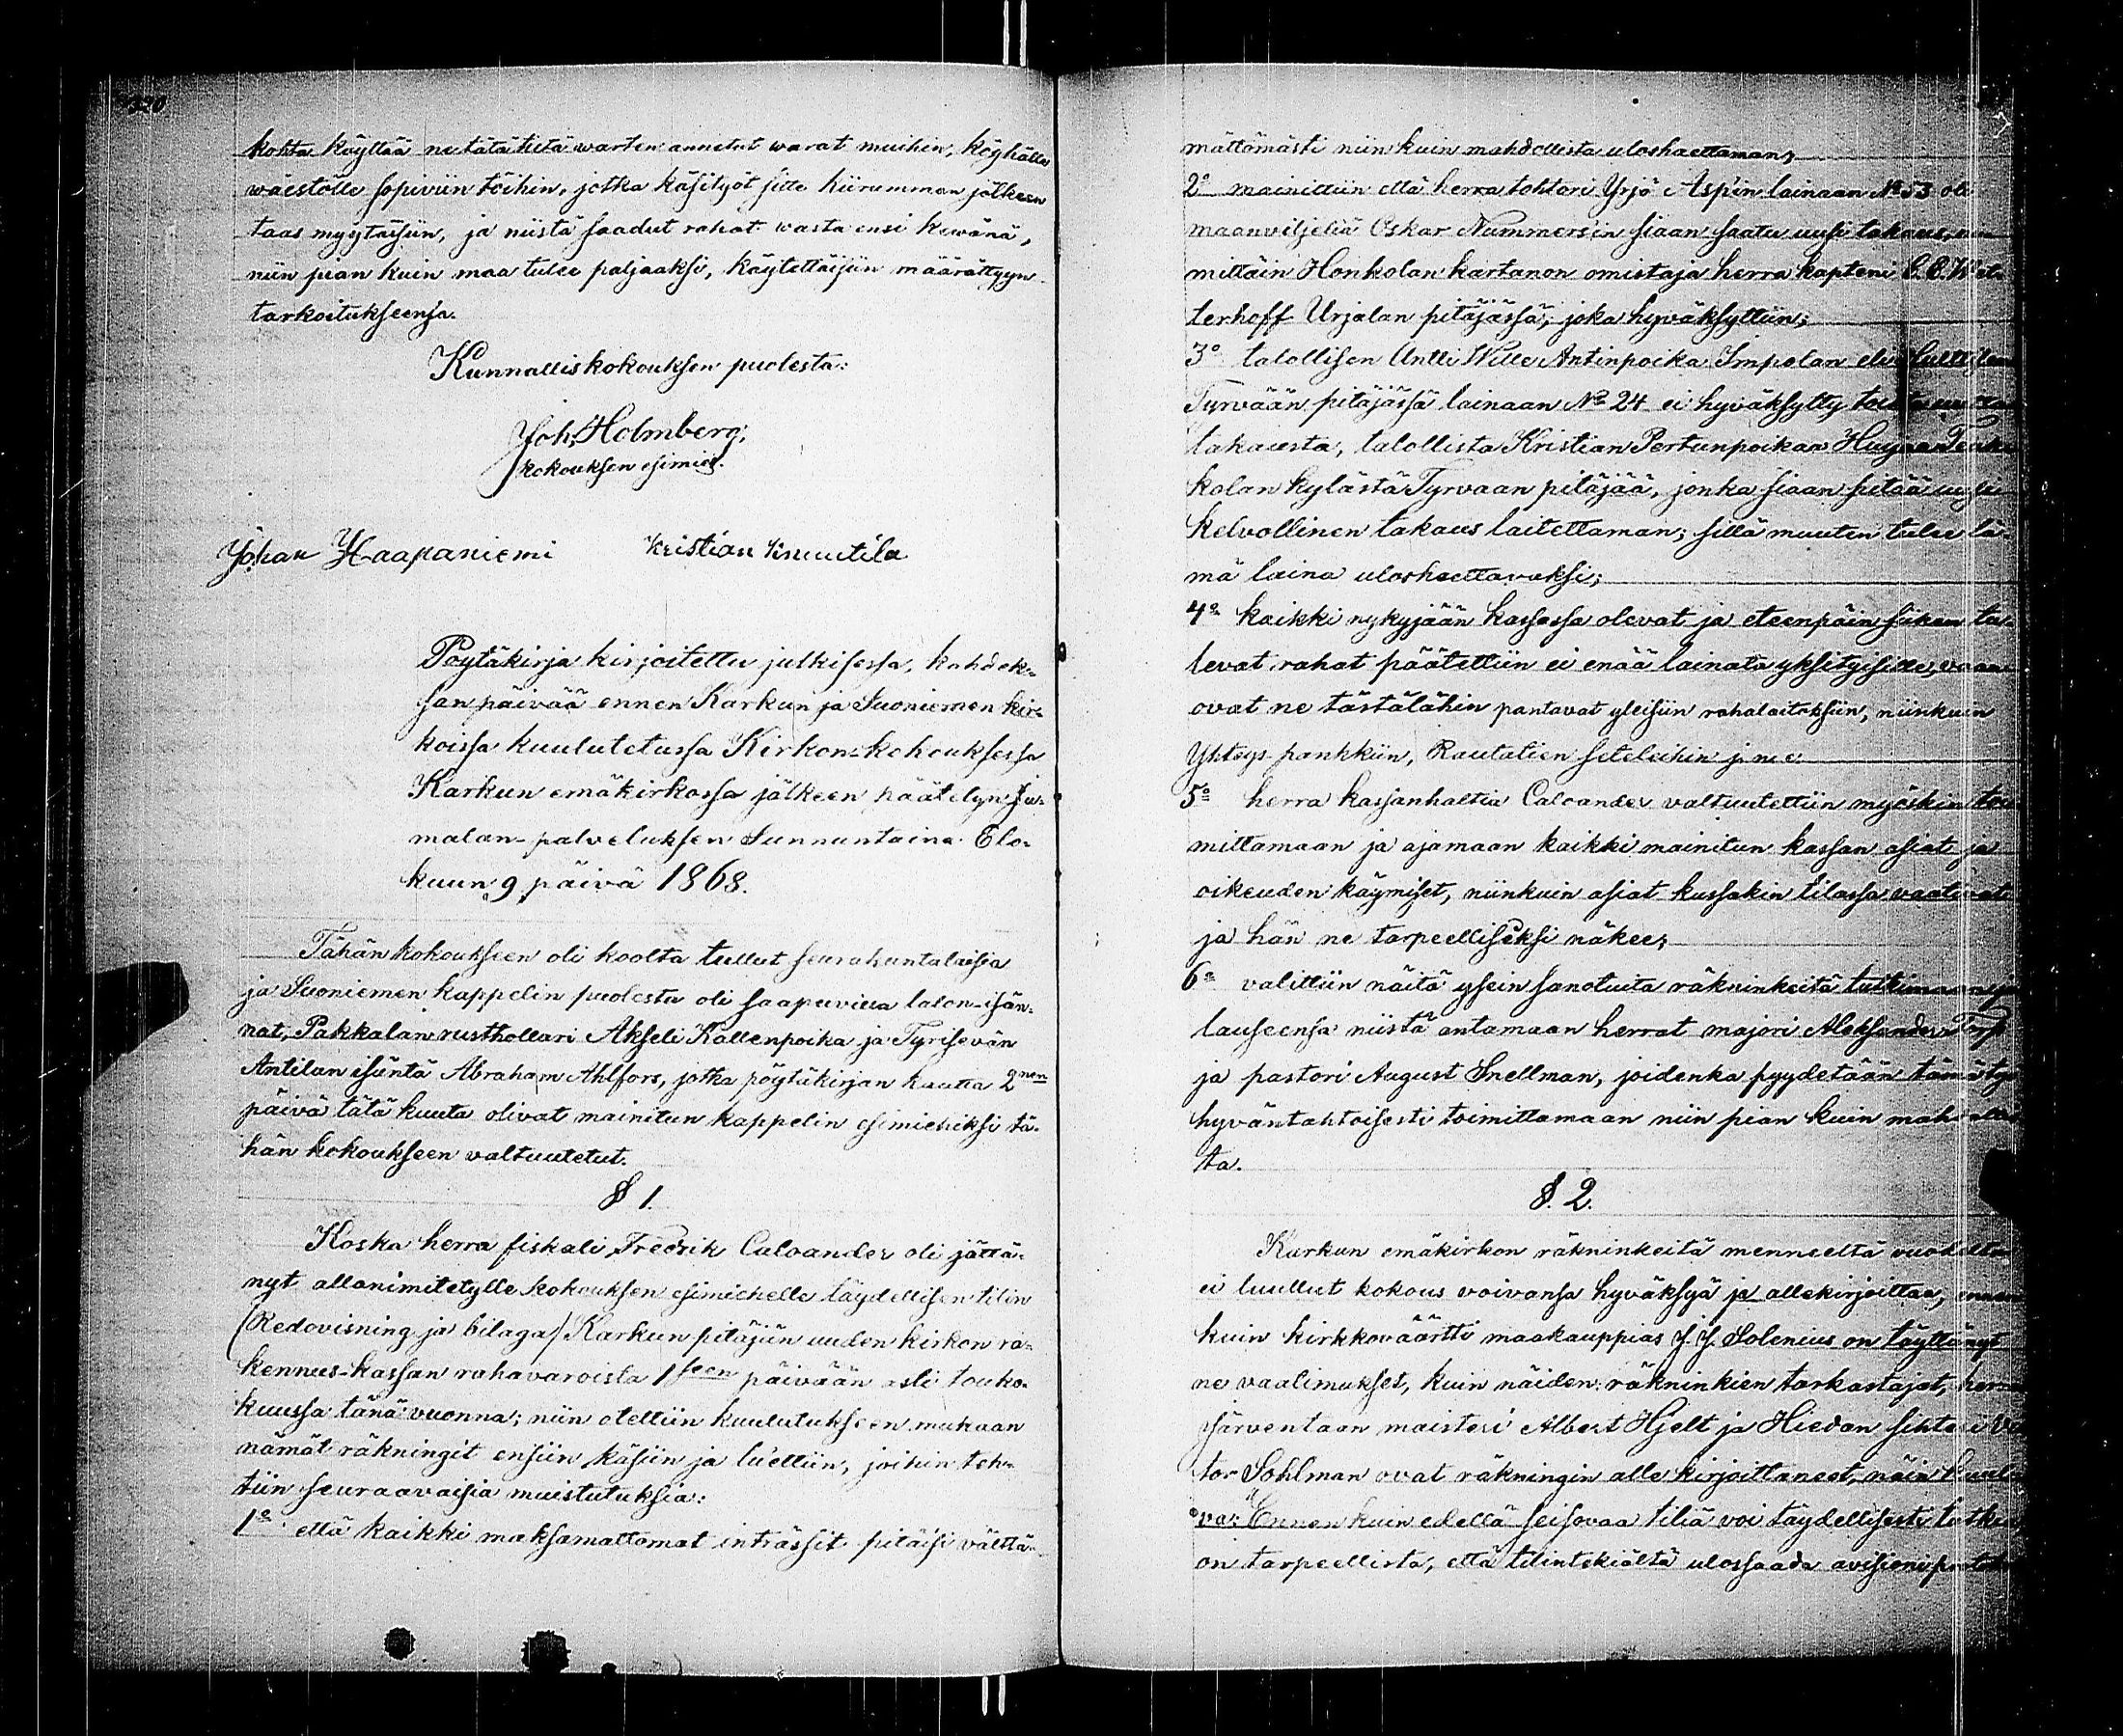 320
kohta käyttää ne tätä tietä warten annetut warat muihin, köyhälle
wäestölle sopiviin töihin, jotka käsityöt sitte hiirummen jälkeen
taas myytäisiin, ja niistä saadut rahat wasta ensi kewänä,
niin pian kuin maa tulee paljaaksi, käytettäisiin määrättyyn
tarkoitukseensa.
Kunnalliskokouksen puolesta:
Joh. Holmberg,
kokouksen esimies.
Johan Haapaniemi Kristian Knuutila
Pöytäkirja kirjoitettu julkisessa, kahdek-
san päivää ennen Karkun ja Suoniemen kir-
koissa kuulutetussa Kirkon-kokouksessa
Karkun emäkirkossa jälkeen päätetyn Ju-
malan-palveluksen Sunnuntaina Elo-
kuun 9 päivä 1868.
Tähän kokoukseen oli koolta tullut seurakuntalaisia
ja Suoniemen kappelin puolesta oli saapuvilla talon-isän-
nat, Pakkalan rusthollari Akseli Kallenpoika ja Tyrisevän
Antilan isäntä Abraham Ahlfors, jotka pöytäkirjan kautta 2nen
päivä tätä kuuta olivat mainitun kappelin esimiehiksi tä-
hän kokoukseen valtuutetut.
§ 1.
Koska herra fiskali Fredrik Caloander oli jättä-
nyt allanimitetylle kokouksen esimiehelle täydellisen tilin
(Redovisning ja bilaga) Karkun pitäjän uuden kirkon ra-
kennus-kassan rahavaroista 1seen päivään asti touko-
kuussa tänä vuonna; niin otettiin kuulutuksen mukaan
nämät räkningit ensiin käsiin ja luettiin, joihin teh-
tiin seuraavaisia muistutuksia:
1o että kaikki maksamattomat inträssit pitäisi vältta-
mättömästi niin kuin mahdollista uloshaettaman;
2o mainittiin että herra tohtori Yrjö Aspin lainaan No 53 oli
maanviljeliä Oskar Nummers'in siaan saatu uusi takaus,
mittäin Honkolan kartanon omistaja herra kapteni
terhoff Urjalan pitäjässä; joka hyväksyttiin;
3o talollisen Antti Wille Antinpoika Impolan
Tyrvään pitäjässä lainaan No 24 ei hyväksytty
takausta, talollista Kristian Pertunpoikaa
kolan kylästä Tyrvaan pitäjää, jonka siaan pitää
kelvollinen takaus laitettaman; sillä muuten tulee tä-
mä laina uloshaettavaksi;
4o kaikki nykyjään kassassa olevat ja eteenpäin siihen tu-
levat rahat päätettiin ei enää lainata yksityisille, vaan
ovat ne tästälähin pantavat yleisiin rahalaitoksiin, niinkuin
Yhteys-pankkiin, Rautatien seteleihin j.n.e.
5o herra kassanhaltia Caloander valtuutettiin myöskin toi-
mittamaan ja ajamaan kaikki mainitun kassan asiat ja
oikeuden käymiset, niinkuin asiat kussakin tilassa vaativat
ja hän ne tarpeelliseksi näkee;
6o valittiin näitä ysein sanotuita räkninkeitä tutkimaan ja
lauseensa niistä antamaan herrat majori Aleksander
ja pastori August Snellman, joidenka pyydetään tämä työ
hyväntahtoisesti toimittamaan niin pian kuin mahdollis-
ta.
§. 2.
Karkun emäkirkon räkninkeitä menneeltä vuodelta
ei luullut kokous voivansa hyväksyä ja allekirjoittaa, ennen
kuin kirkkoväärtti maakauppias J. J. Solenius on täyttänyt
ne vaalimukset, kuin näiden räkninkien tarkastajat, herra
Järventaan maisteri Albert Hjelt ja Hiedan sihteri
tor Sohlman ovat räkningin alle kirjoittaneet, näin kuulu-
va: "Ennen kuin edellä seisovaa tiliä voi täydellisesti tutkia
on tarpeellista, että tilintekiältä ulossaada